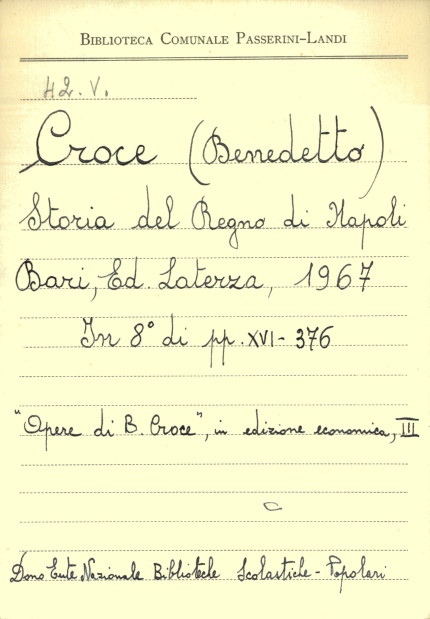 BIBLIOTECA COMUNALE PASSERINI-LANDI
H2. V.
Croce (Benedetto)
Storia del Regno di Napoli
Bari, Ed. Laterza, 1967
In 8° di pp. XVI - 376
"Opere di B. Croce", in edizione economica, III
Dono Ente Nazionale Biblioteche Scolastiche - Popolari